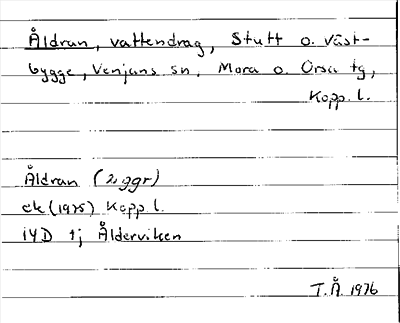 Åldran, vattendrag, Stutt o. Väst-
bygge, Venjans sn, Mora o. Orsa tg,
Kopp. l.
Åldran (2 ggr)
ek (1975) Kopp. l.
14D tj Ålderviken
T.Å. 1976